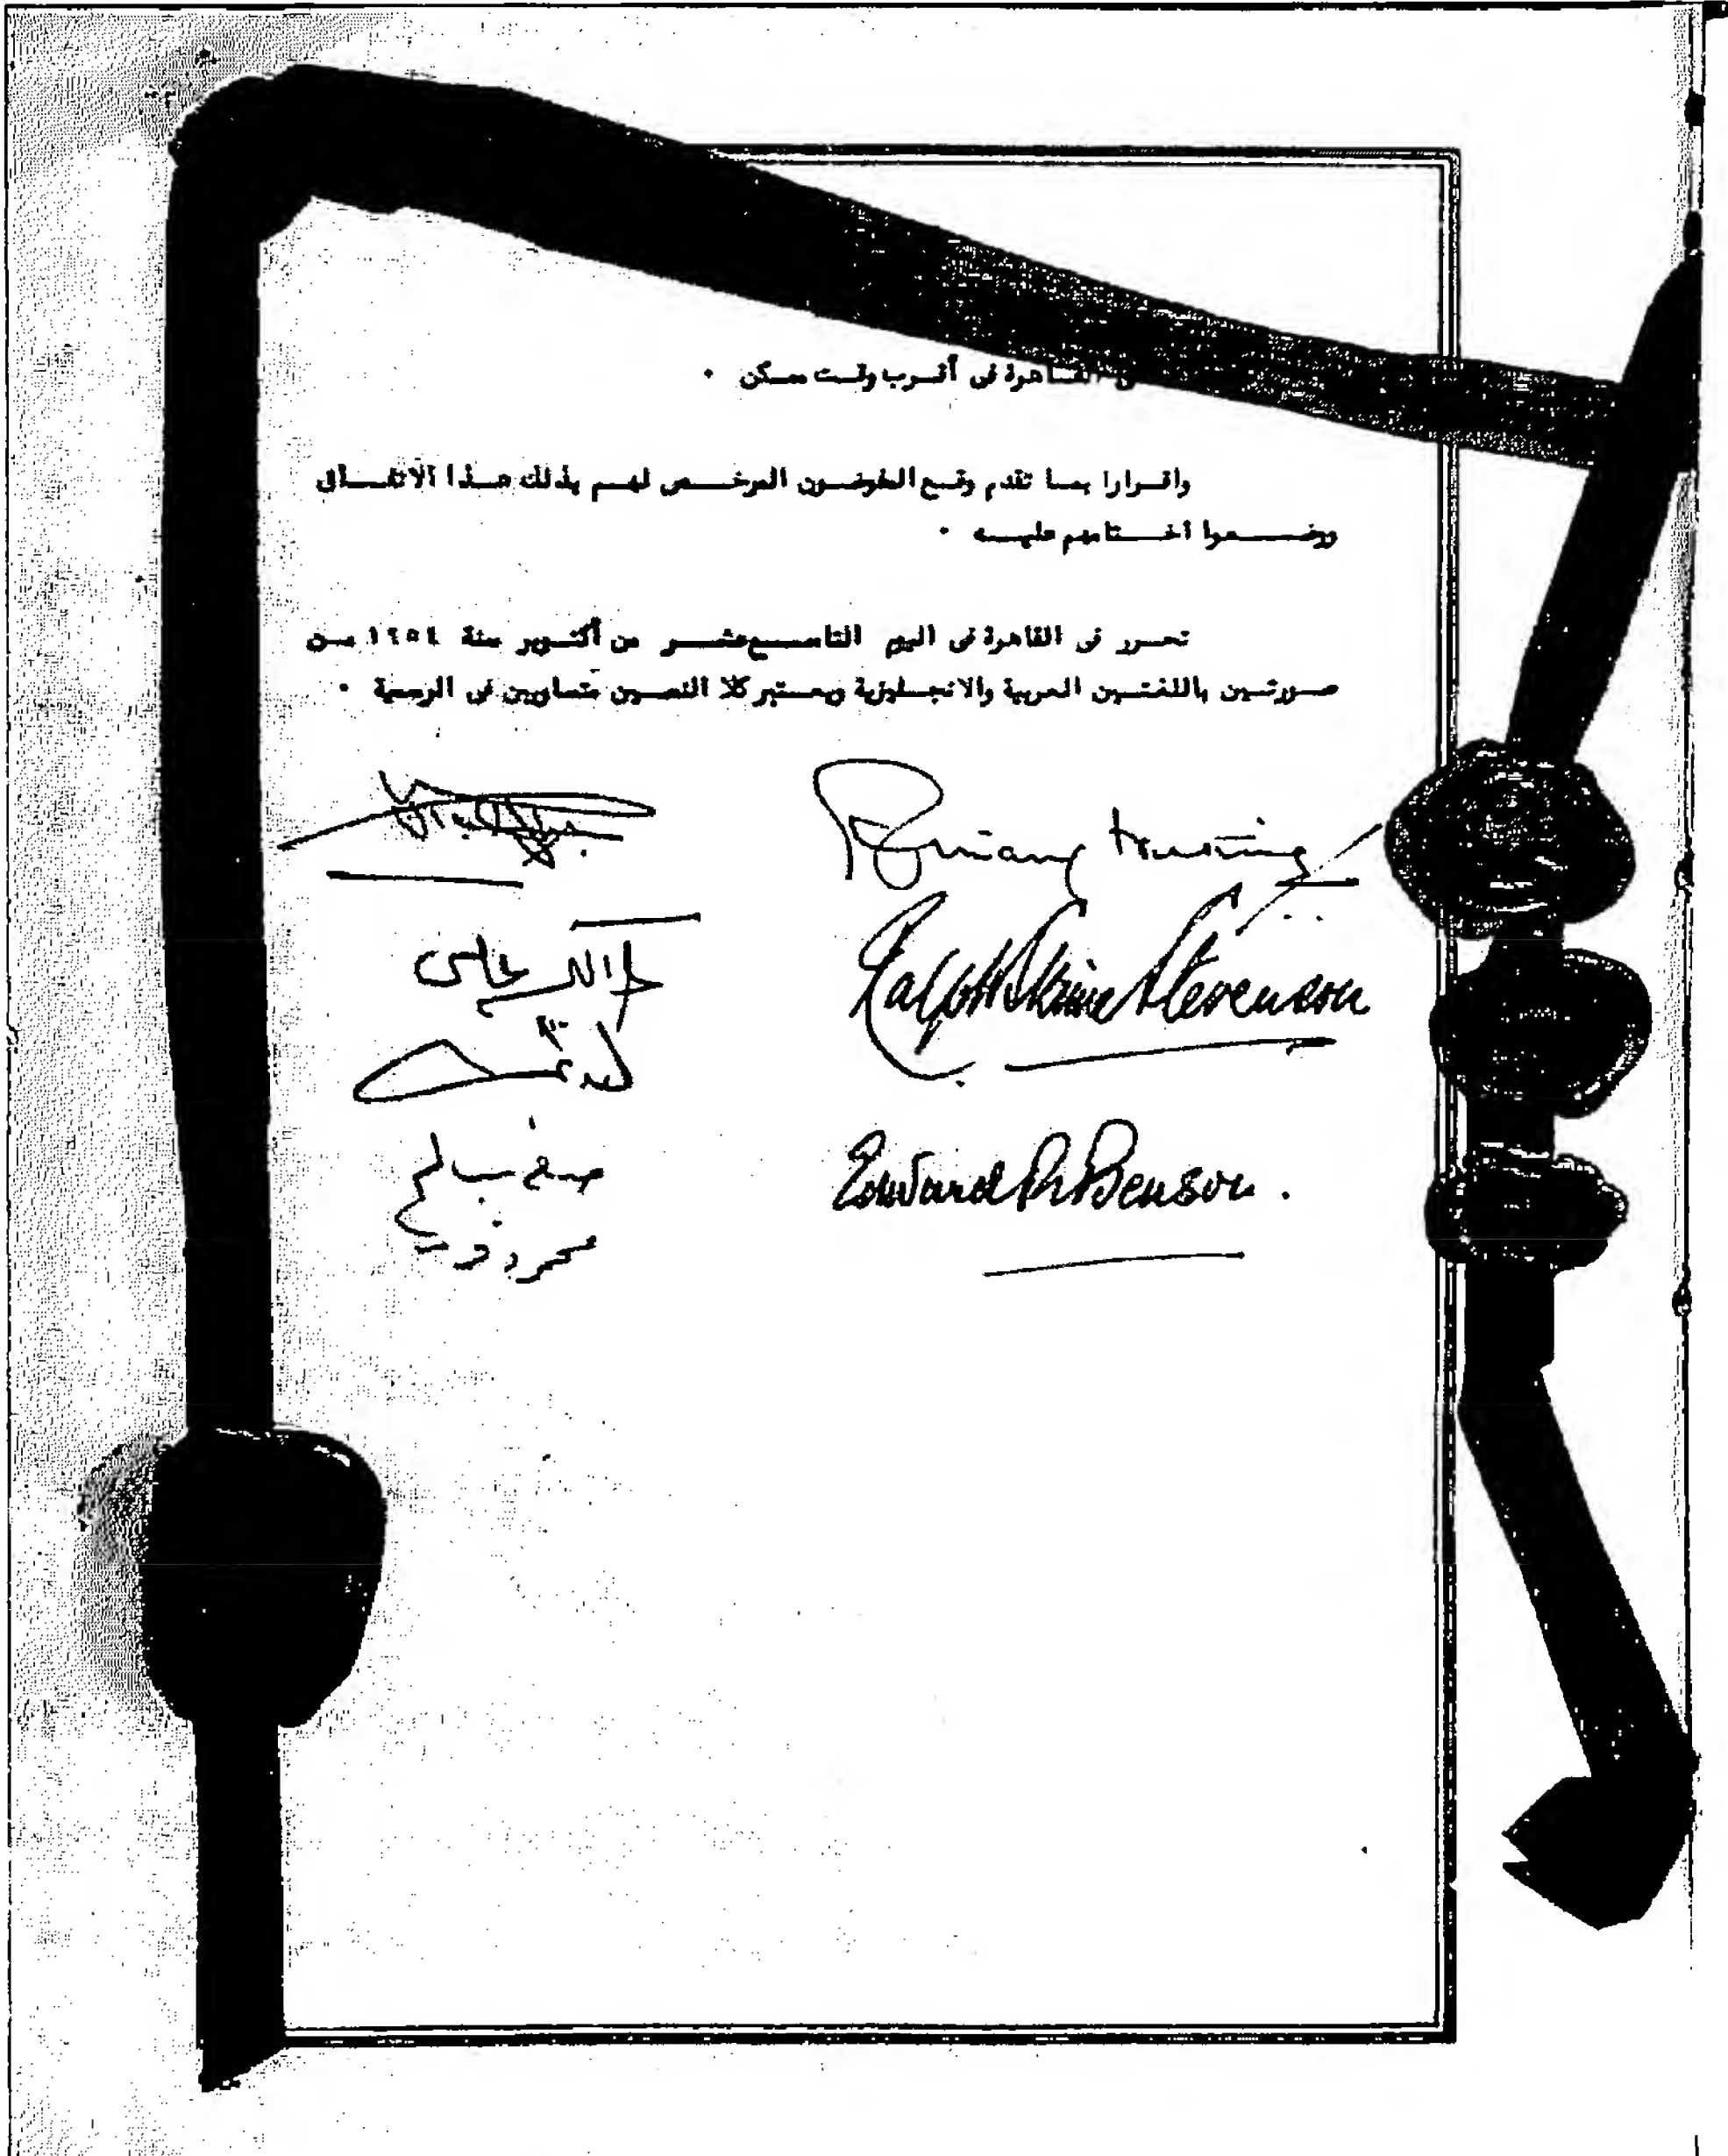 القاهرة فى أقرب وقت ممكن ٠
واقرارا بما تقدم وقع المفوضون المرخص لهم بذلك هذا الاتفاق
ووضعوا أختامهم عليه ٠
تحرر فى القاهرة فى اليوم التاسع عشر من أكتوبر سنة ١٩٥٤ من
صورتين باللغتين العربية والانجليزية ويعتبر كلا النصين متساويين فى الرسمية ٠
Ralph Skrine Stevenson
Edward R Benson.
صلاح سالم
محمود فوزى